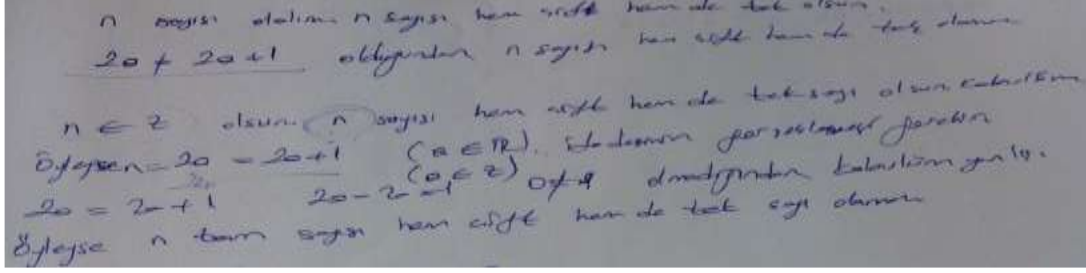 n sayısı alalım. n sayısı hem çift hem de tek olsun.
2a ≠ 2a+1 olduğundan n sayısı hem çift hem de tek olamaz
n ∈ Z olsun. n sayısı hem çift hem de tek sayı olsun, kabul edelim
Öyleyse n = 2a = 2a+1 (a ∈ R). (a ∈ Z)
2a = 2a+1 2a - 2a = 1 0 ≠ 1 olmadığından
Öyleyse n tam sayısı hem çift hem de tek sayı olamaz